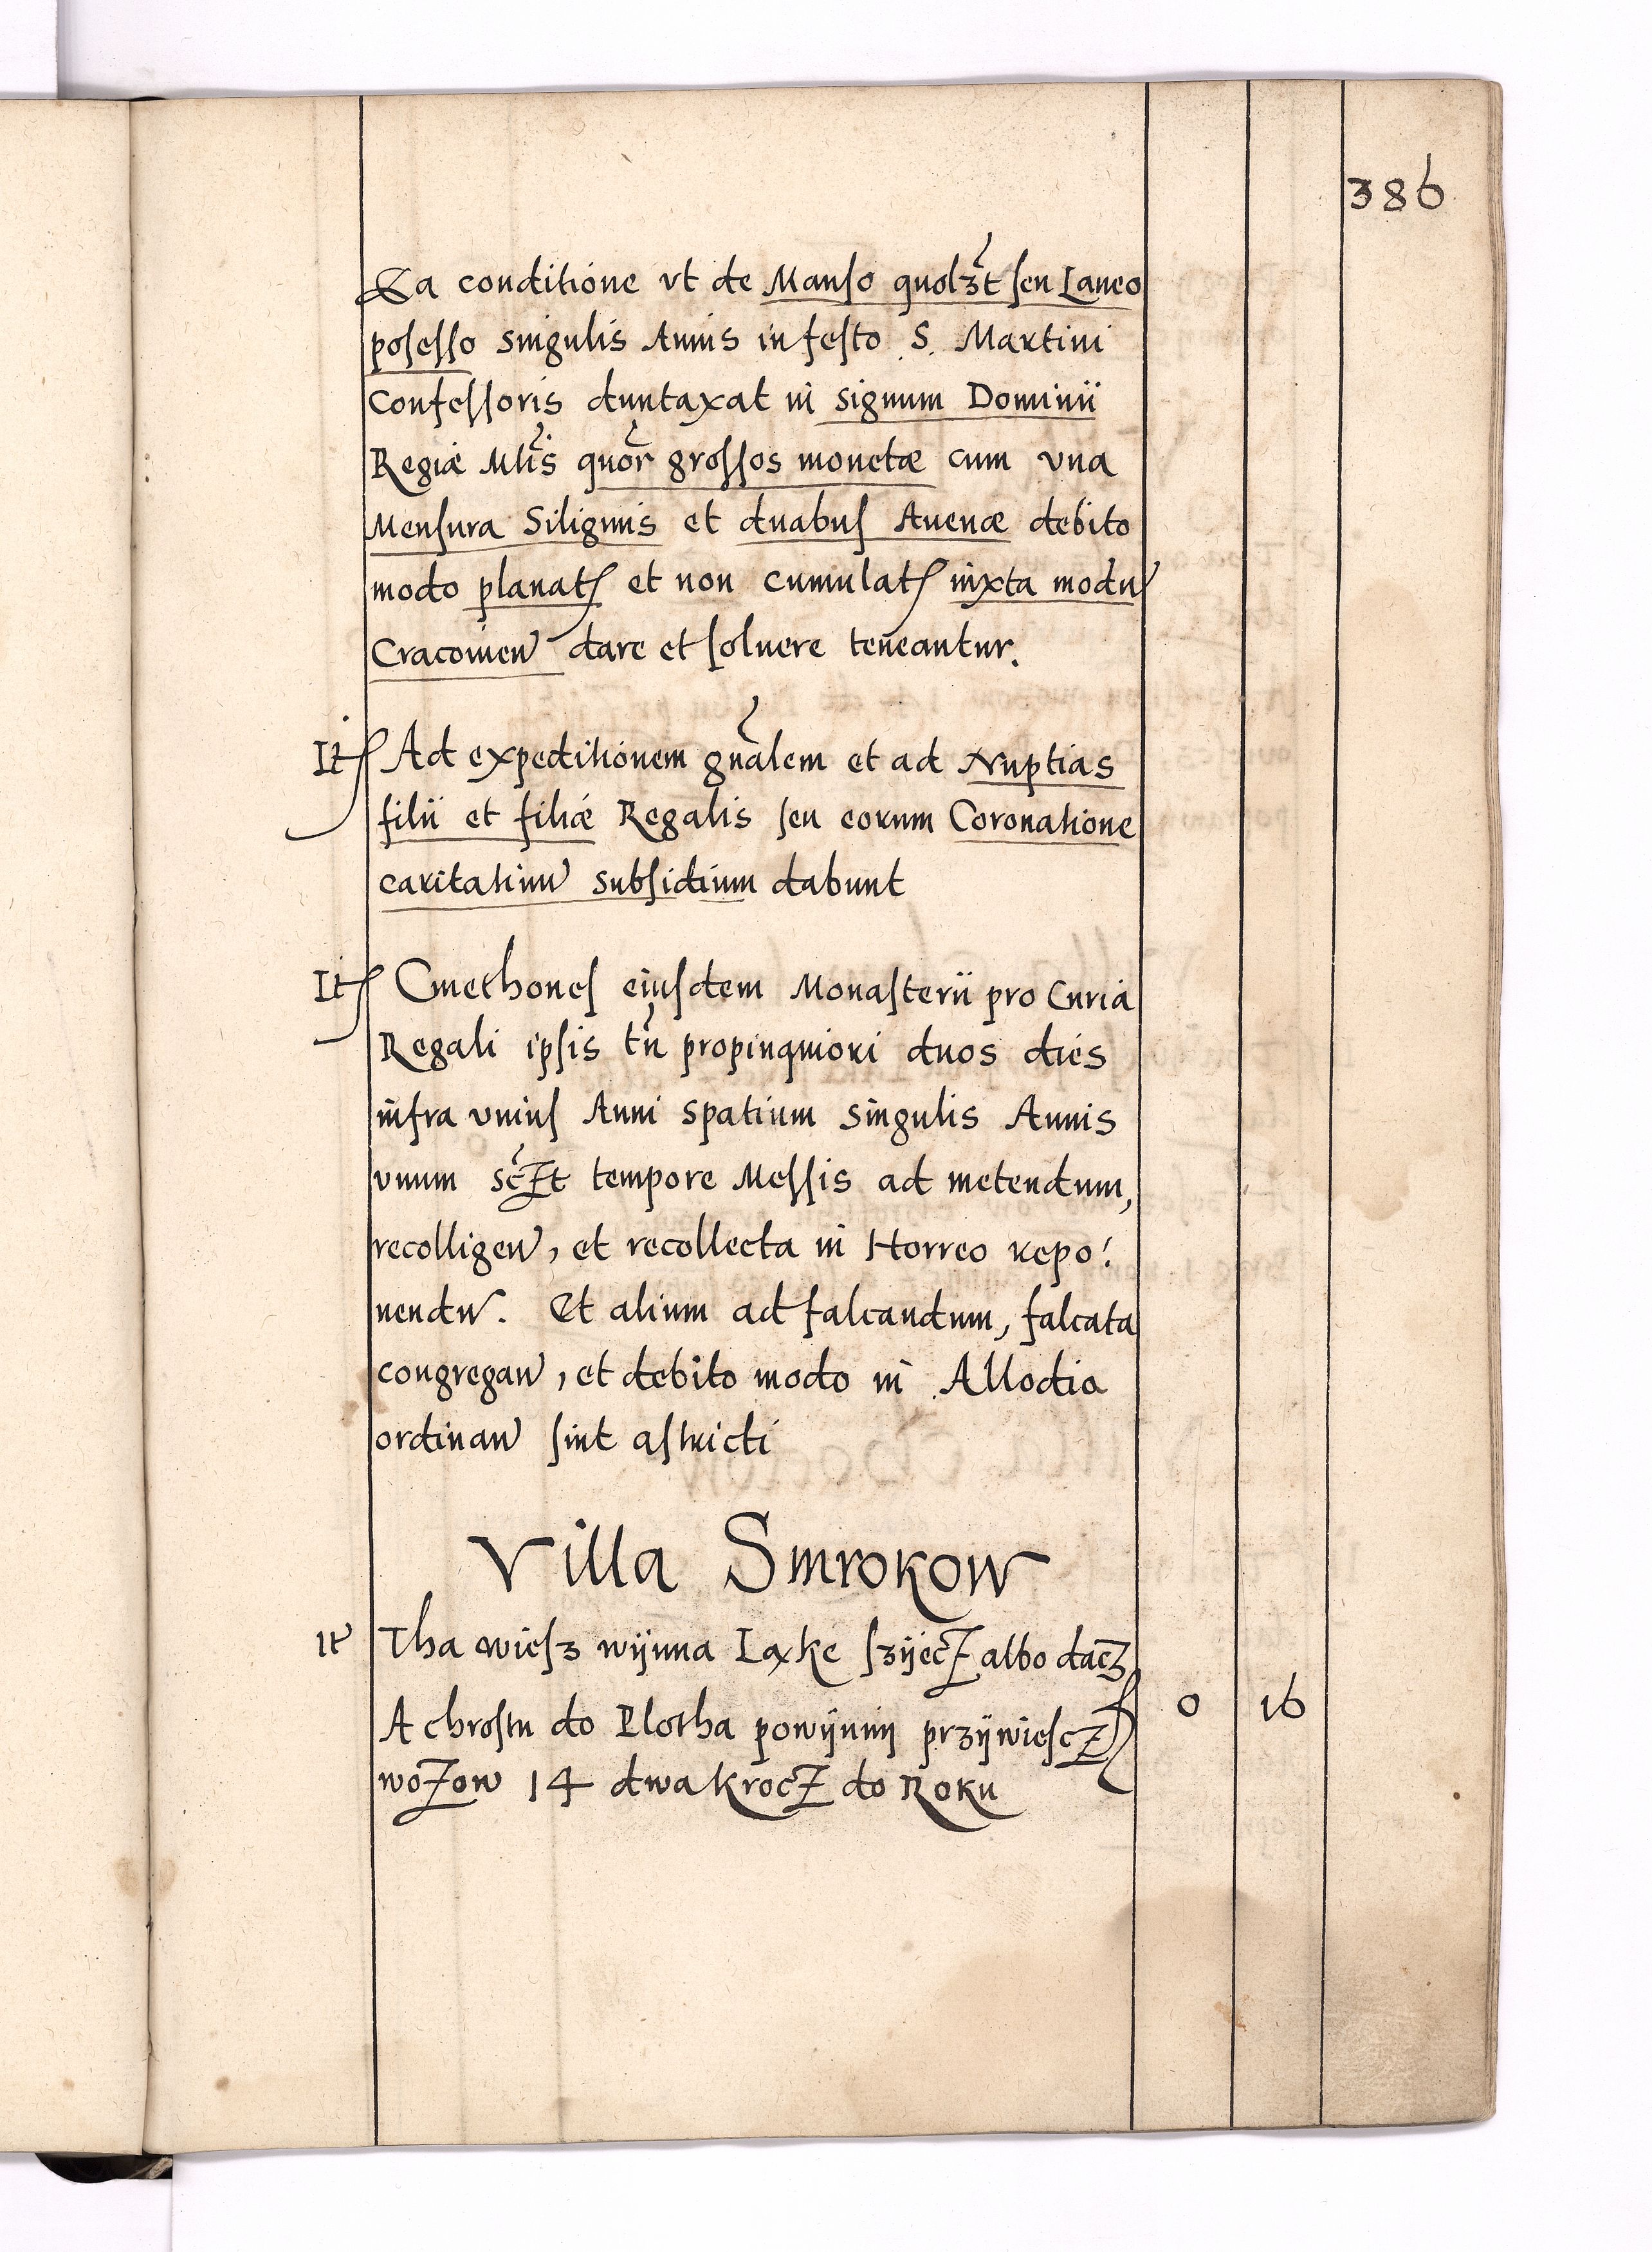 386
Ea conditione vt de Manso quolzt seu Laneo
posesso singulis Annis in festo S. Martini
Confessoris duntaxat in signum Dominii
Regiæ Mtis quor grossos monetæ cum vna
Mensura Siliginis et duabus Auenæ debito
modo planat et non cumulat iuxta modu
Cracouien dare et soluere teneantur.
It Ad expeditionem gnalem et ad Nuptias
filii et filiæ Regalis seu eorum Coronatione
caritatiuu subsidium dabunt
It Cmethones eiusdem Monasterii pro Curia
Regali ipsis tn propinquiori duos dies
infra vnius Anni spatium singulis Annis
vnum sczt tempore Messis ad metendum,
recolligen, et recollecta in Horreo repo:
nendu. Et alium ad falcandum, falcata
congregan, et debito modo in Allodia
ordinan sint astricti
Villa Smrokow
It Tha wiesz wÿnna Ląke szÿecz albo dacz
A chrostu do Plotha powÿnnÿ przÿwiescz 0 16
wozow 14 dwa krocz do Roku